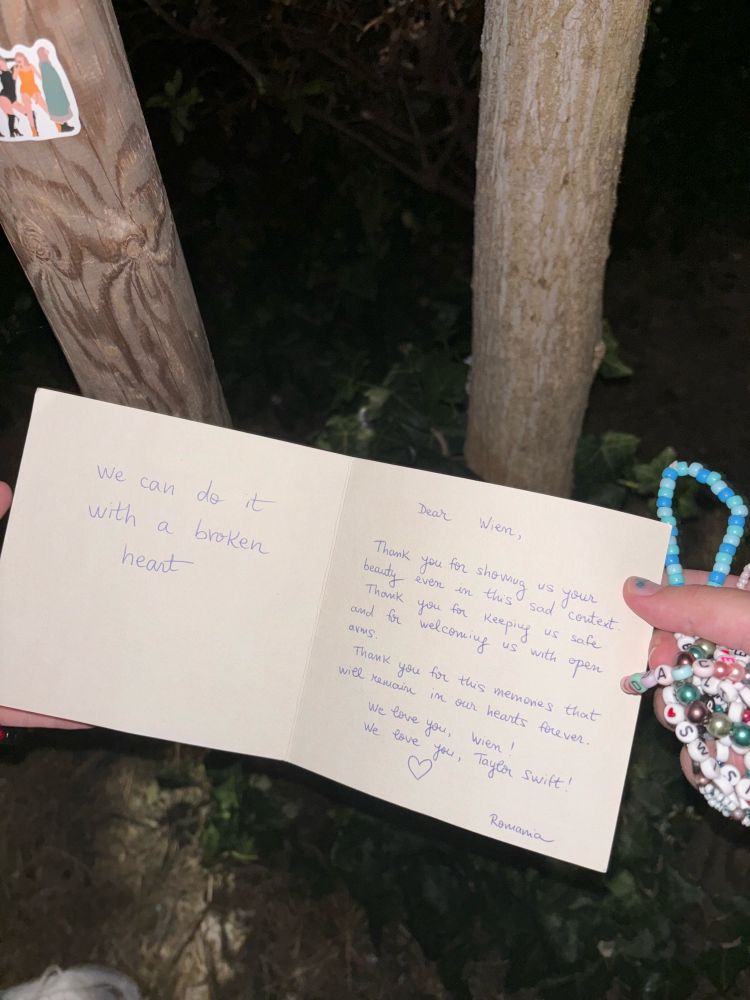 we can do it
with a broken
heart
Dear Wien,
Thank you for showing us your
beauty even in this sad context.
Thank you for keeping us safe
and for welcoming us with open
arms.
Thank you for this memories that
will remain in our hearts forever.
We love you, Wien!
We love you, Taylor Swift!
Romania